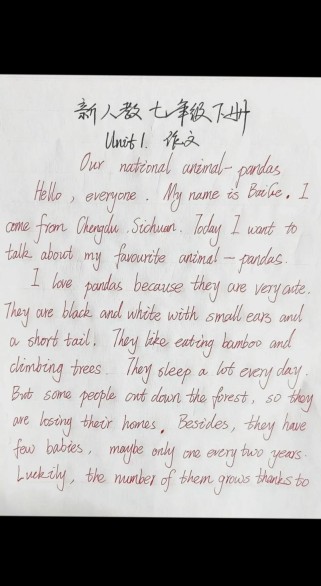 新人教七年级下册
Unit 1. 作文
Our national animal-pandas
Hello, everyone. My name is BaiGe. I
come from Chengdu, Sichuan. Today I want to
talk about my favourite animal-pandas.
I love pandas because they are very cute.
They are black and white with small ears and
a short tail. They like eating bamboo and
climbing trees. They sleep a lot every day.
But some people cut down the forest, so they
are losing their homes. Besides, they have
few babies, maybe only one every two years.
Luckily, the number of them grows thanks to